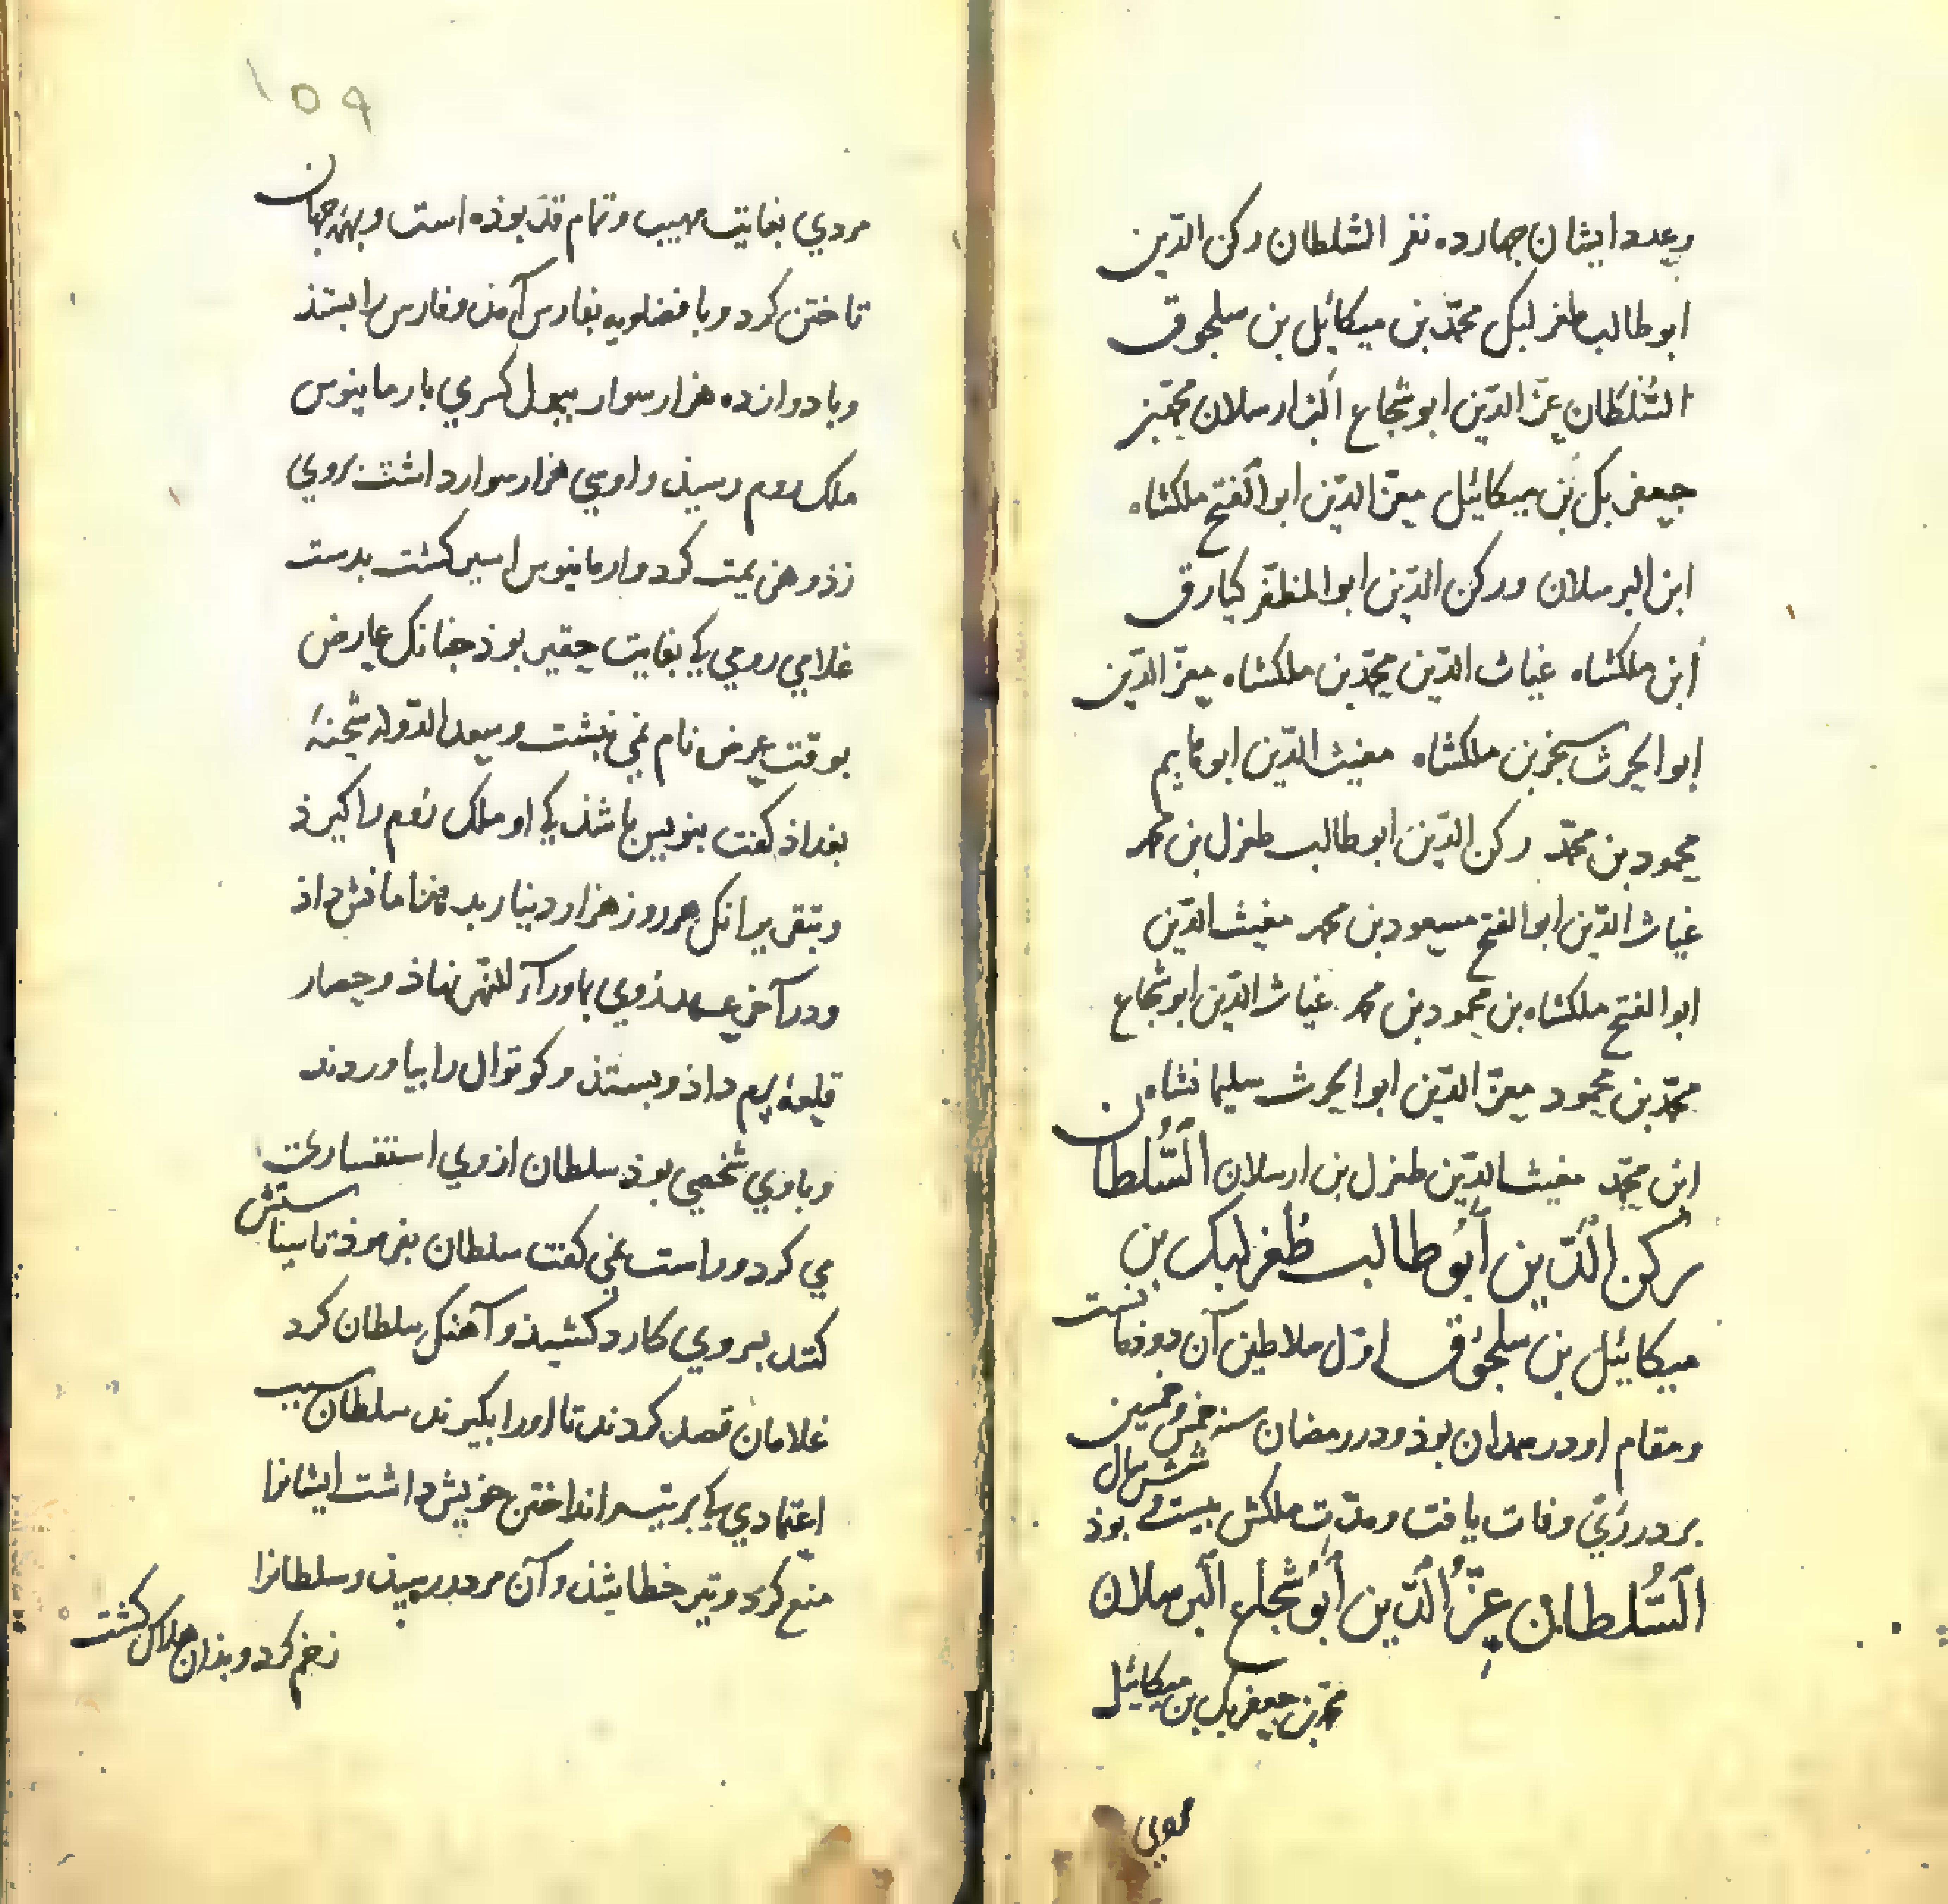 وعدد ایشان جهارده نفر السلطان رکن الدّین
ابو طالب طغرلبک محمّد بن میکائیل بن سلجوق
السُّلطان عزّ الدّین ابو شجاع البارسلان محمّد بن
جعفر بک بن میکائیل معزّ الدّین ابوالفتح ملکشاه
ابن البرسلان ورکن الدّین ابوالمظفّر کیارق
ابن ملکشاه غیاث الدّین محمّد بن ملکشاه معزّ الدّین
ابوالحرث سنجر بن ملکشاه مغیث الدّین ابوالقاسم
محمود بن محمّد رکن الدّین ابوطالب طغرل بن محمد
غیاث الدّین ابوالفتح مسعود بن محمد مغیث الدّین
ابوالفتح ملکشاه بن محمود بن محمد غیاث الدّین ابوشجاع
محمّد بن محمود معزّ الدّین ابوالحرث سلیمانشاه بن
ابن محمّد مغیث الدّین طغرل بن ارسلان السُّلطان
رکن الدّین ابُوطالب طُغرلبک بن
میکائیل بن سلجوق اوّل سلاطین آن دوذمانست
ومقام او در همدان بوذ ودر رمضان سنه خمس وخمسین
بر در ریّ وفات یافت ومدّت ملکش بیست و شش سال بوذ
السُّلطان عزّ الدّین ابُوشجاع البرسلان
محمّد بن جعفر بک بن میکائیل
مردي
١٥٩
مردي بغایت مهیب وتمام قد بوذه است وبهمه جهان
تاختن کرد وبا فضلویه بفارس آمذ وفارس را بستذ
وبا دوازده هزار سوار بهول کسري بارمانیوس
ملک روم رسیذ واو سی هزار سوار داشت بروي
زذ وهزیمت کرد وارمانیوس اسیر کشت بدست
غلامي رومي کی بغایت حقیر بوذ جنانک عارض
بوقت عرض نام نمی نبشت وسعد الدّوله شحنهٔ
بغداذ کفت بنویس باشذ کی او ملک روم را کیرذ
وبتقریر انک هر روز هزار دینار بدهذ امانش داذ
ودر آخر عهد روي بماورآء النّهر نهاذ وحصار
قلعهٔ برم داذ وبستذ وکوتوال را بیاوردند
وباوي شخصي بوذ سلطان ازوي استفساری
می کرد وراست نمی کفت سلطان بفرموذ تا سیاستش
کنند بیروي کارد کشیذ وآهنک سلطان کرد
غلامان قصد کردند تا اورا بکیرند سلطان بسبب
اعتمادي کی بر تیر انداختن خویش داشت ایشانرا
منع کرد وتیر خطا شذ وآن مرد در رسیذ وسلطانرا
زخم کرد وبذان هلاک کشت